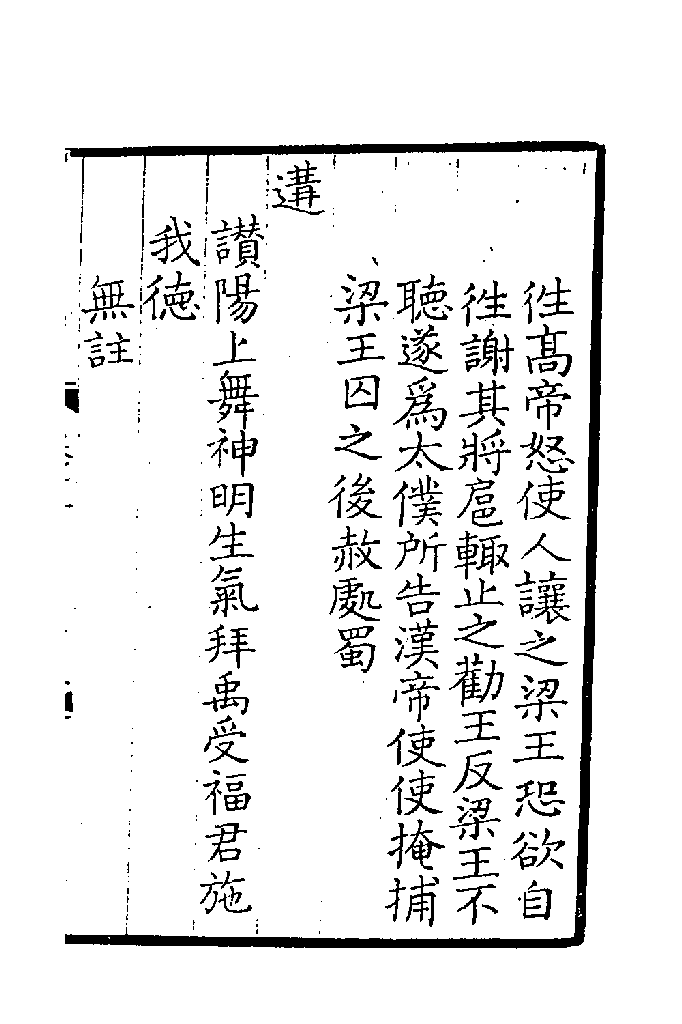 徃髙帝怒使人讓之梁王恐欲自
徃謝其將扈輙止之勸王反梁王不
聽遂爲太僕所告漢帝使使掩捕
梁王囚之後赦處蜀
遘
讃陽上舞神明生氣拜禹受福君施
我德
無註